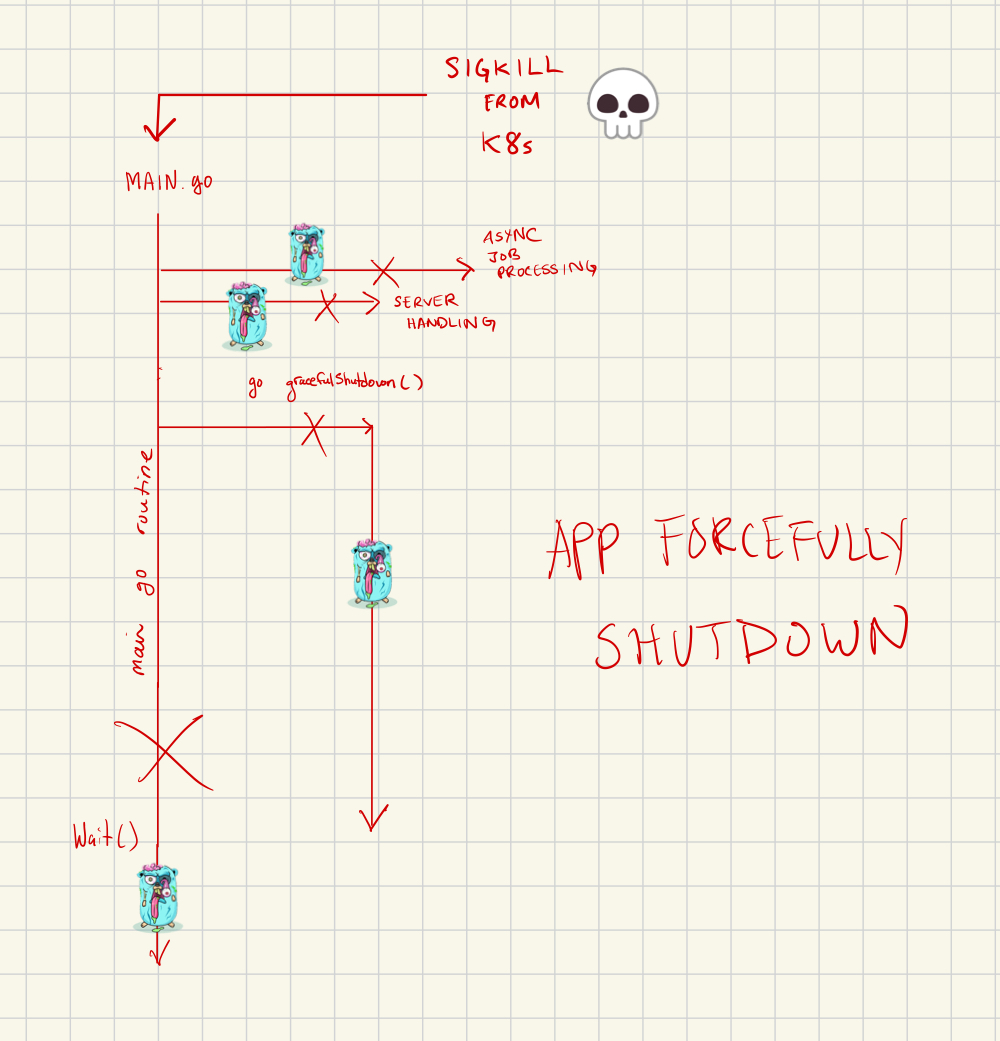 SIGKILL
FROM
K8s
MAIN.go
ASYNC
JOB
PROCESSING
SERVER
HANDLING
go gracefulShutdown()
main go routine
APP FORCEFULLY
SHUTDOWN
Wait()